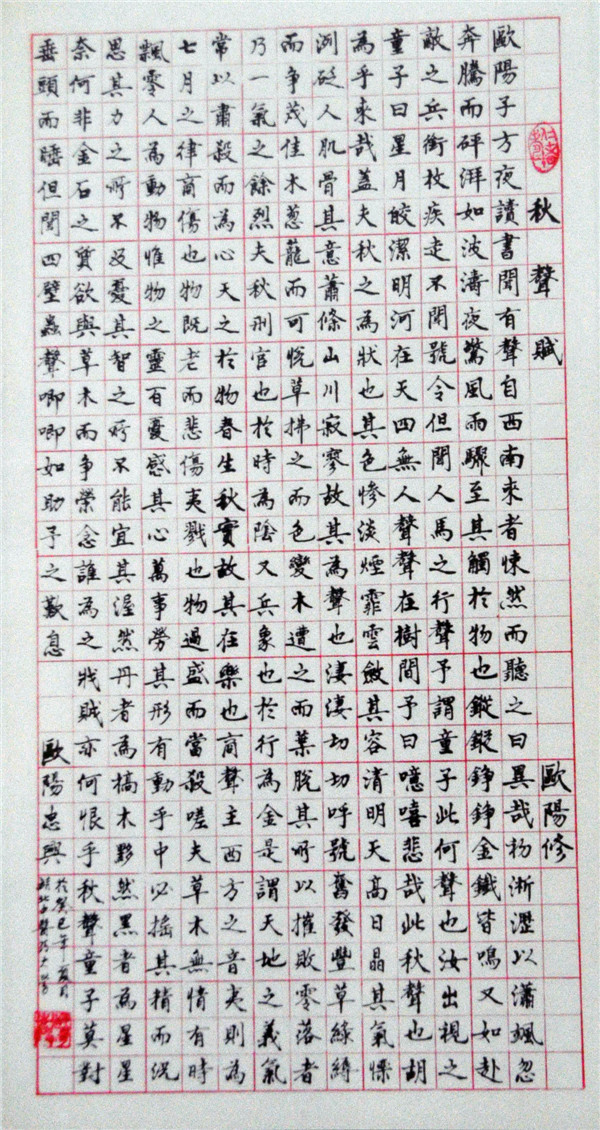 秋聲賦 歐陽修
歐陽子方夜讀書聞有聲自西南來者悚然而聽之曰異哉初淅瀝以瀟颯忽
奔騰而砰湃如波濤夜驚風雨驟至其觸於物也鏦鏦錚錚金鐵皆鳴又如赴
敵之兵銜枚疾走不聞號令但聞人馬之行聲予謂童子此何聲也汝出視之
童子曰星月皎潔明河在天四無人聲聲在樹間予曰噫嘻悲哉此秋聲也胡
為乎來哉蓋夫秋之為狀也其色慘淡煙霏雲斂其容清明天高日晶其氣慄
洌砭人肌骨其意蕭條山川寂寥故其為聲也淒淒切切呼號奮發豐草綠縟
而爭茂佳木蔥蘢而可悅草拂之而色變木遭之而葉脫其所以摧敗零落者
乃一氣之餘烈夫秋刑官也於時為陰又兵象也於行為金是謂天地之義氣
常以肅殺而為心天之於物春生秋實故其在樂也商聲主西方之音夷則為
七月之律商傷也物既老而悲傷夷戮也物過盛而當殺嗟夫草木無情有時
飄零人為動物惟物之靈百憂感其心萬事勞其形有動乎中必搖其精而況
思其力之所不及憂其智之所不能宜其渥然丹者為槁木黟然黑者為星星
奈何非金石之質欲與草木而爭榮念誰為之戕賊亦何恨乎秋聲童子莫對
垂頭而睡但聞四壁蟲聲唧唧如助予之歎息 歐陽忠興
於癸巳年